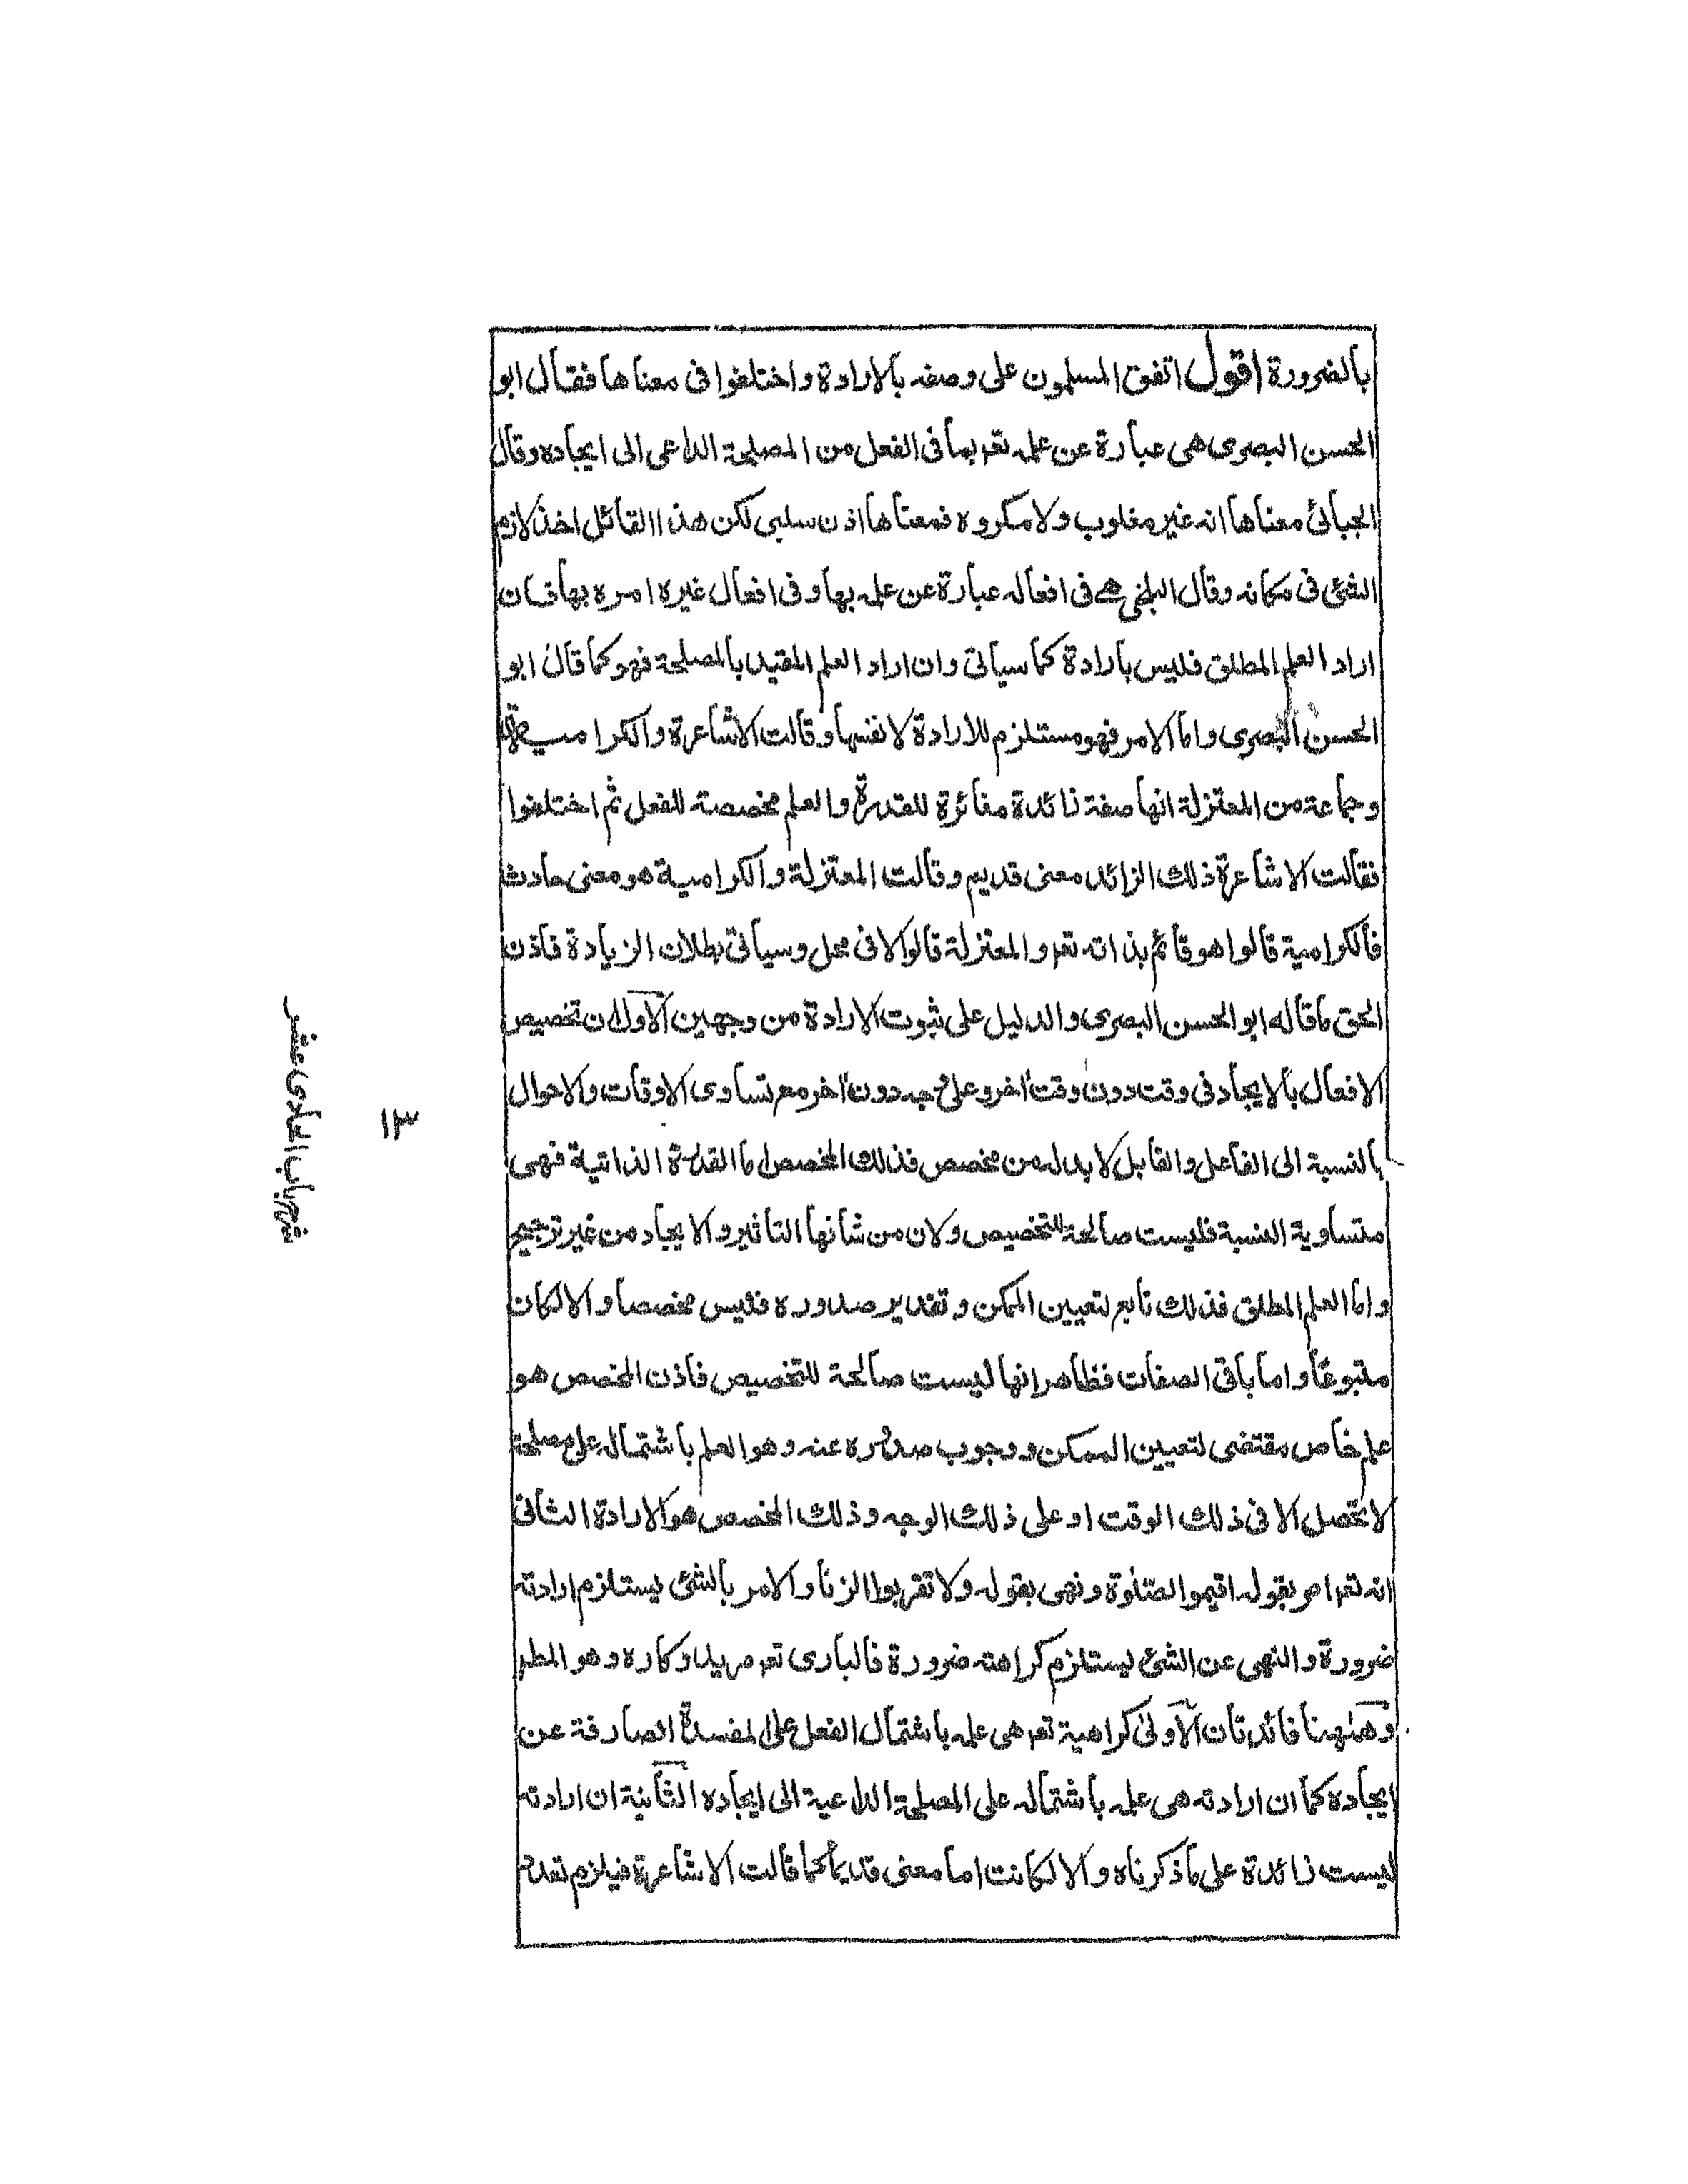 بالضرورة اقول اتفق المسلمون على وصفه بالارادة واختلفوا فى معناها فقال ابو
الحسن البصرى هى عبارة عن علمه تعم بما فى الفعل من المصلحة الداعى الى ايجاده وقال
الجبائى معناها انه غير مغلوب ولا مكروه فمعناها اذن سلبى لكن هذا القائل اخذ لازم
الشئ فى مكانه وقال البلخى هى فى افعاله عبارة عن علمه بها وفى افعال غيره امره بها فان
اراد العلم المطلق فليس بارادة كما سياتى وان اراد العلم المقيد بالمصلحة فهو كما قال ابو
الحسن البصرى واما الامر فهو مستلزم للارادة لا نفسها وقالت الاشاعرة والكرامية
وجماعة من المعتزلة انها صفة زائدة مغائرة للقدرة والعلم مخصصة للفعل ثم اختلفوا
فقالت الاشاعرة ذلك الزائد معنى قديم وقالت المعتزلة والكرامية هو معنى حادث
فالكرامية قالوا هو قائم بذاته تعم والمعتزلة قالوا لا فى محل وسياتى بطلان الزيادة فاذن
الحق ما قاله ابو الحسن البصرى والدليل على ثبوت الارادة من وجهين الاول ان تخصيص
الافعال بالايجاد فى وقت دون وقت اخر وعلى وجه دون اخر مع تساوى الاوقات والاحوال
بالنسبة الى الفاعل والقابل لا بد له من مخصص فذلك المخصص اما القدرة الذاتية فهى
متساوية النسبة فليست صالحة للتخصيص ولان من شانها التاثير والايجاد من غير ترجيح
واما العلم المطلق فذلك تابع لتعيين الممكن وتقدير صدوره فليس مخصصا والا لكان
متبوعًا واما باقى الصفات فظاهر انها ليست صالحة للتخصيص فاذن المخصص هو
علم خاص مقتضى لتعيين الممكن ووجوب صدوره عنه وهو العلم باشتماله على مصلحة
لا تحصل الا فى ذلك الوقت او على ذلك الوجه وذلك المخصص هو الارادة الثانى
انه تعم امر بقوله اقيموا الصلوة ونهى بقوله ولا تقربوا الزنا والامر بالشئ يستلزم ارادته
ضرورة والنهى عن الشئ يستلزم كراهته ضرورة فالبارى تعم مريد وكاره وهو المطلوب
وههنا فائدتان الاولى كراهية تعم هى علمه باشتمال الفعل على المفسدة الصارفة عن
ايجاده كما ان ارادته هى علمه باشتماله على المصلحة الداعية الى ايجاده الثانية ان ارادته
ليست زائدة على ما ذكرناه والا لكانت اما معنى قديما كما قالت الاشاعرة فيلزم تعدد
١٣
شرح باب الحادى عشر